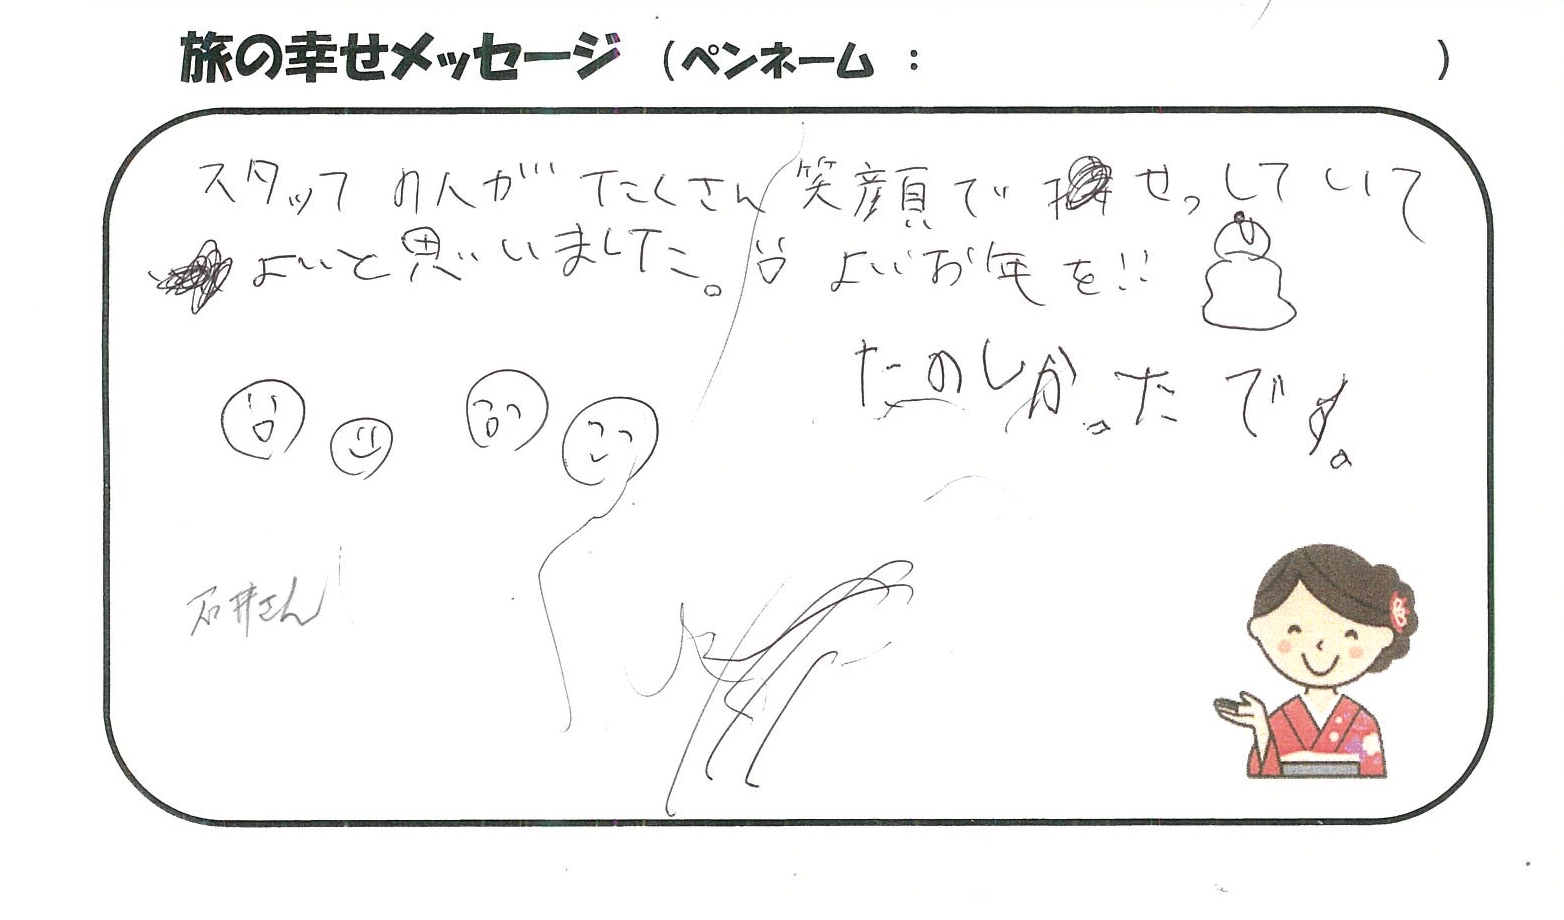 旅の幸せメッセージ (ペンネーム : )
スタッフの人がたくさん笑顔で せっしていて
よいと思いました。よいお年を!!
たのしかったです。
石井さん